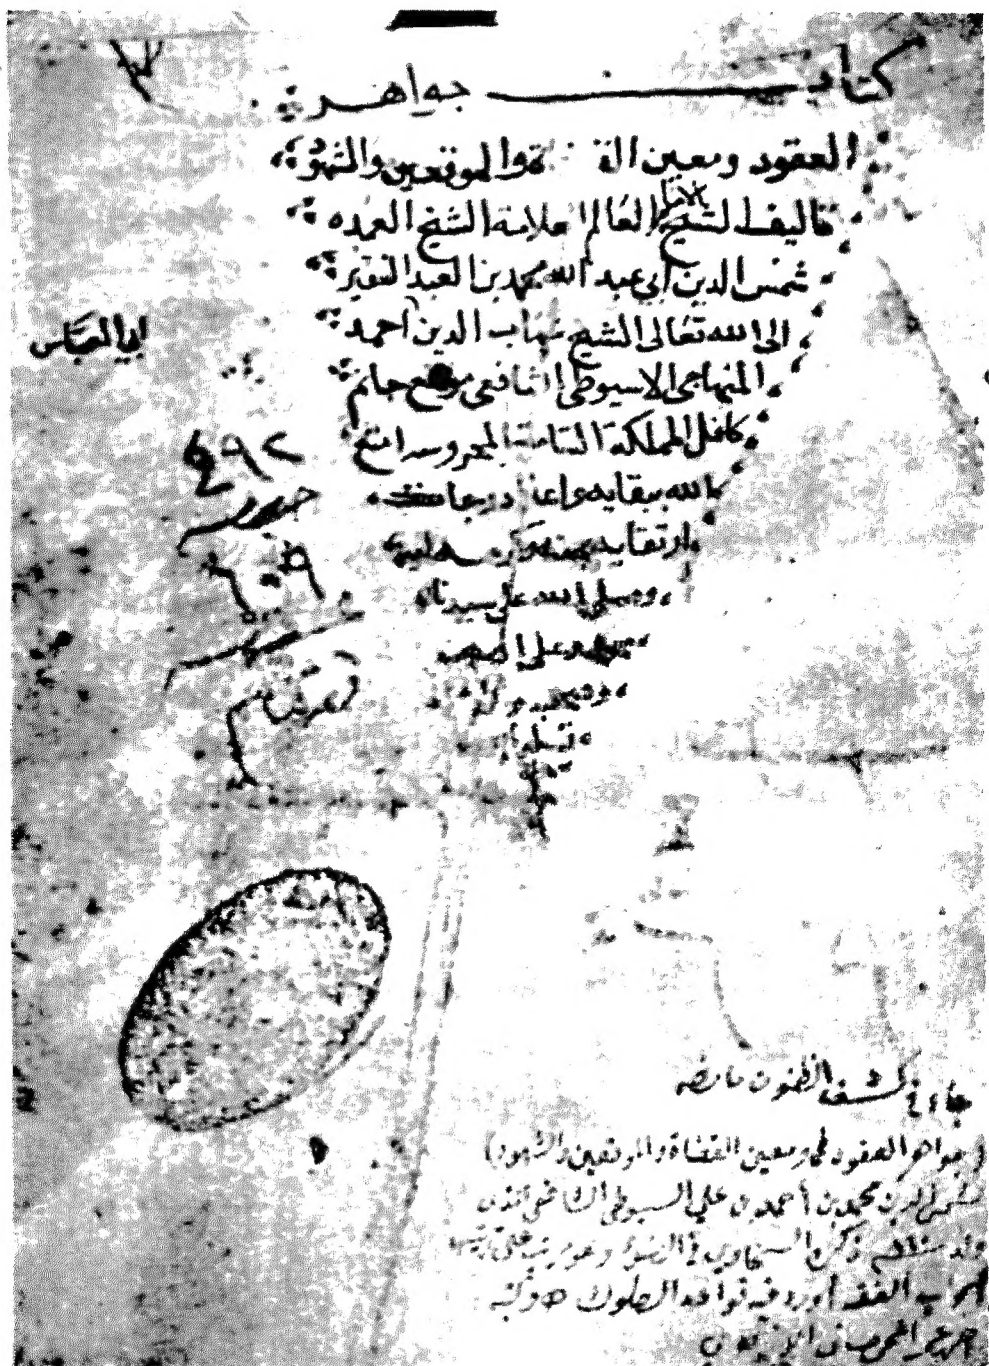 كتاب جواهر
العقود ومعين الق ة والموقعين والشهو
تاليف الشيخ الامام العالم العلامة الشيخ العمده
شمس الدين ابي عبد الله محمد بن العبد الفقير
الى الله تعالى الشيخ شهاب الدين احمد
ابي العباس
المنهاجي الاسيوطي الشافعي موقع جانم
كافل المملكة الشامية المحروسه امتع
الله ببقايه واعلا درجات
ارتقايه بمنه وكرمه
وصلى الله على سيدنا
محمد وعلى اله
وصحبه وسلم
تسليما
٤٩٢
٦٠٩
جاء في كشف الظنون ما نصه
(جواهر العقود ومعين القضاة والموقعين والشهود)
شمس الدين محمد بن أحمد بن علي السيوطي الشافعي الذي
ولد سنة ذكره السخاوي في الضوء وهو مرتب على ترتيب
أبواب الفقه أورد فيه قواعد الصكوك